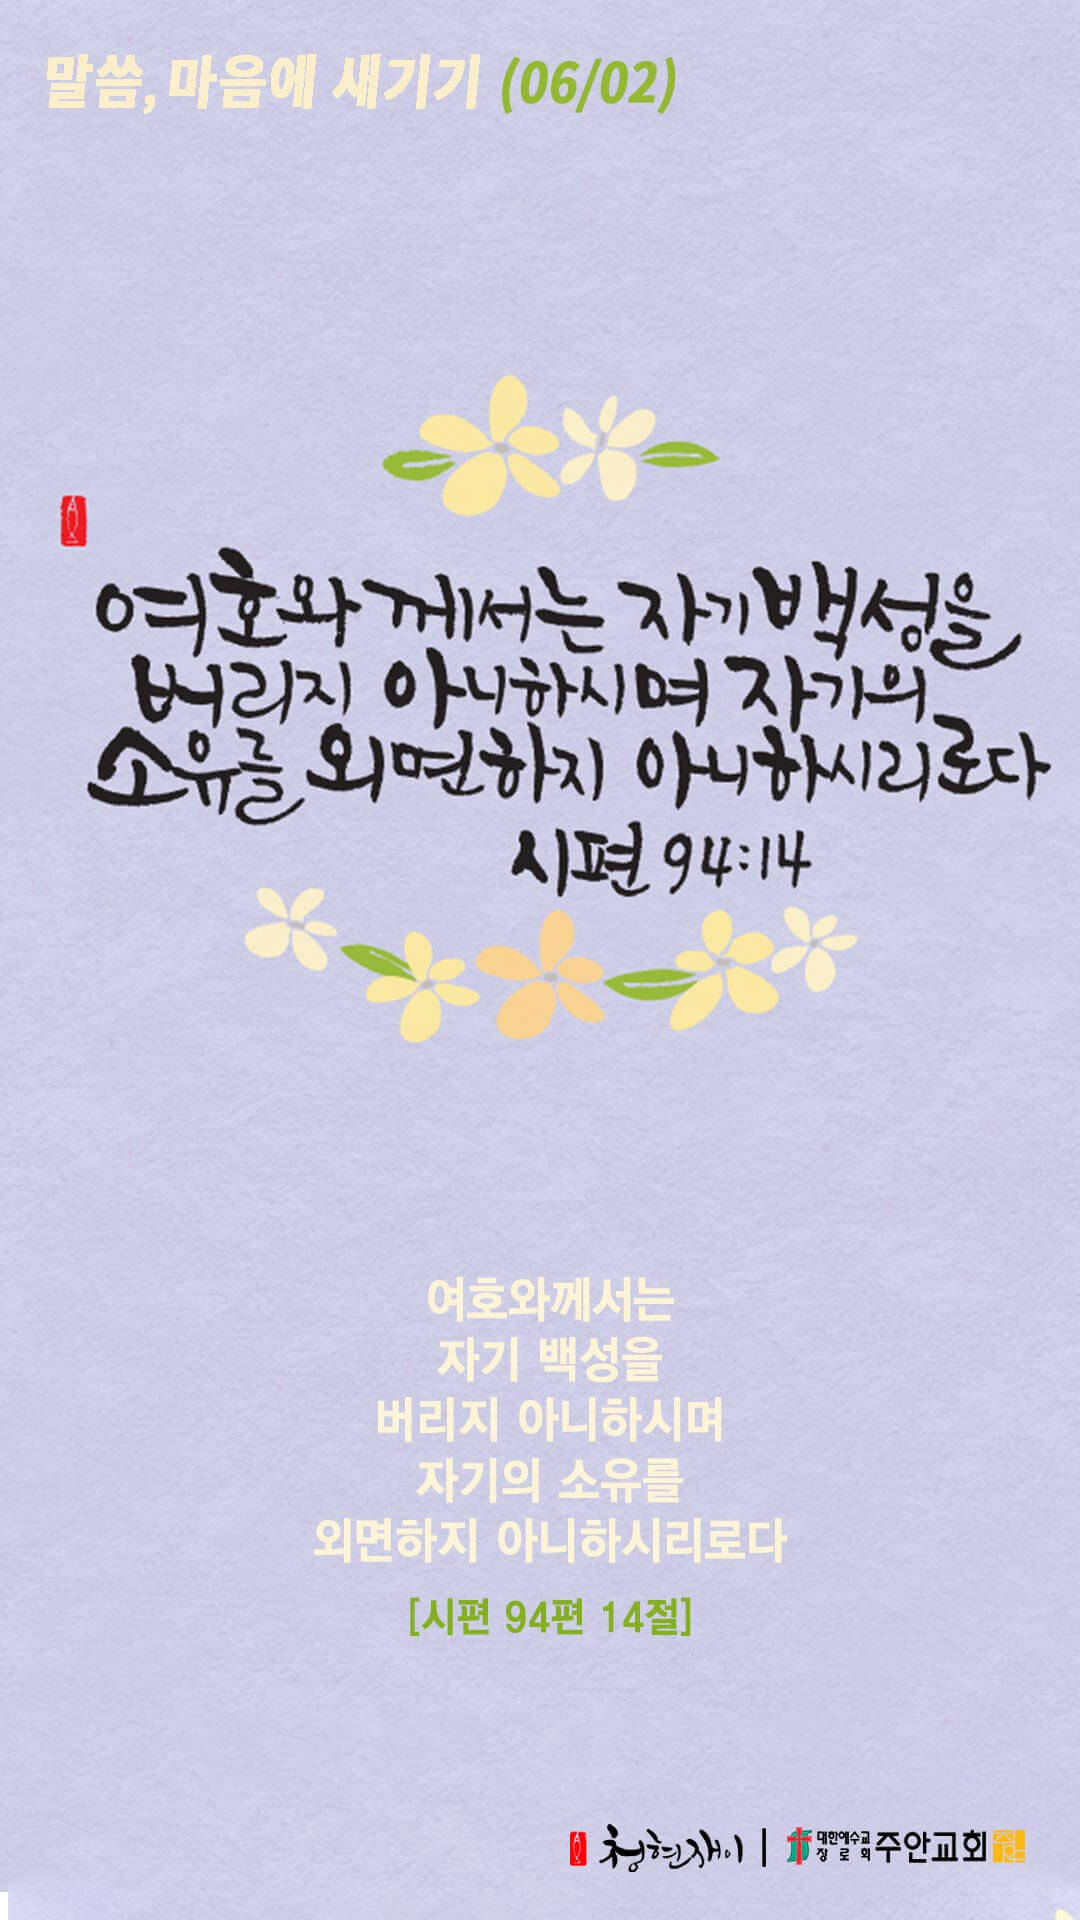 말씀, 마음에 새기기 (06/02)
여호와께서는 자기백성을
버리지 아니하시며 자기의
소유를 외면하지 아니하시리로다
시편 94:14
여호와께서는
자기 백성을
버리지 아니하시며
자기의 소유를
외면하지 아니하시리로다
[시편 94편 14절]
청현재이 | 대한예수교장로회 주안교회